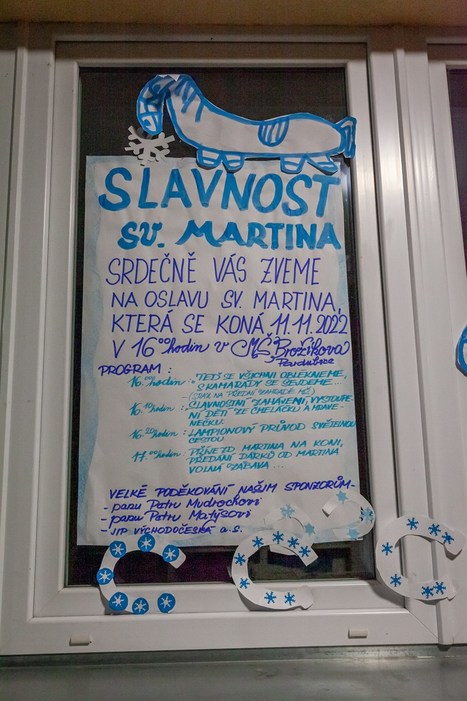 SLAVNOST
SV. MARTINA
SRDEČNĚ VÁS ZVEME
NA OSLAVU SV. MARTINA,
KTERÁ SE KONÁ 11.11.2022
V 16°° hodin v MŠ Brožíkova
Pardubice
PROGRAM:
16.00 hodin: - TEPLE SE VŠICHNI OBLÉKNEME,
S KAMARÁDY SE SEJDEME...
(SRAZ NA PŘEDNÍ ZAHRADĚ MŠ)
16.10 hodin: - SLAVNOSTNÍ ZAHÁJENÍ, VYSTOUPE-
NÍ DĚTÍ ZE CHELÁČKU A MRAVE-
NEČKU.
16.20 hodin: - LAMPIONOVÝ PRŮVOD SVĚTELNOU
CESTOU
17.00 hodin: - PŘÍJEZD MARTINA NA KONI,
PŘEDÁNÍ DÁRKŮ OD MARTINA
VOLNÁ ZÁBAVA...
VELKÉ PODĚKOVÁNÍ NAŠIM SPONZORŮM-
- panu Petru Mudrochovi
- panu Petru Matysovi
- JIP VÝCHODOČESKÁ a.s.